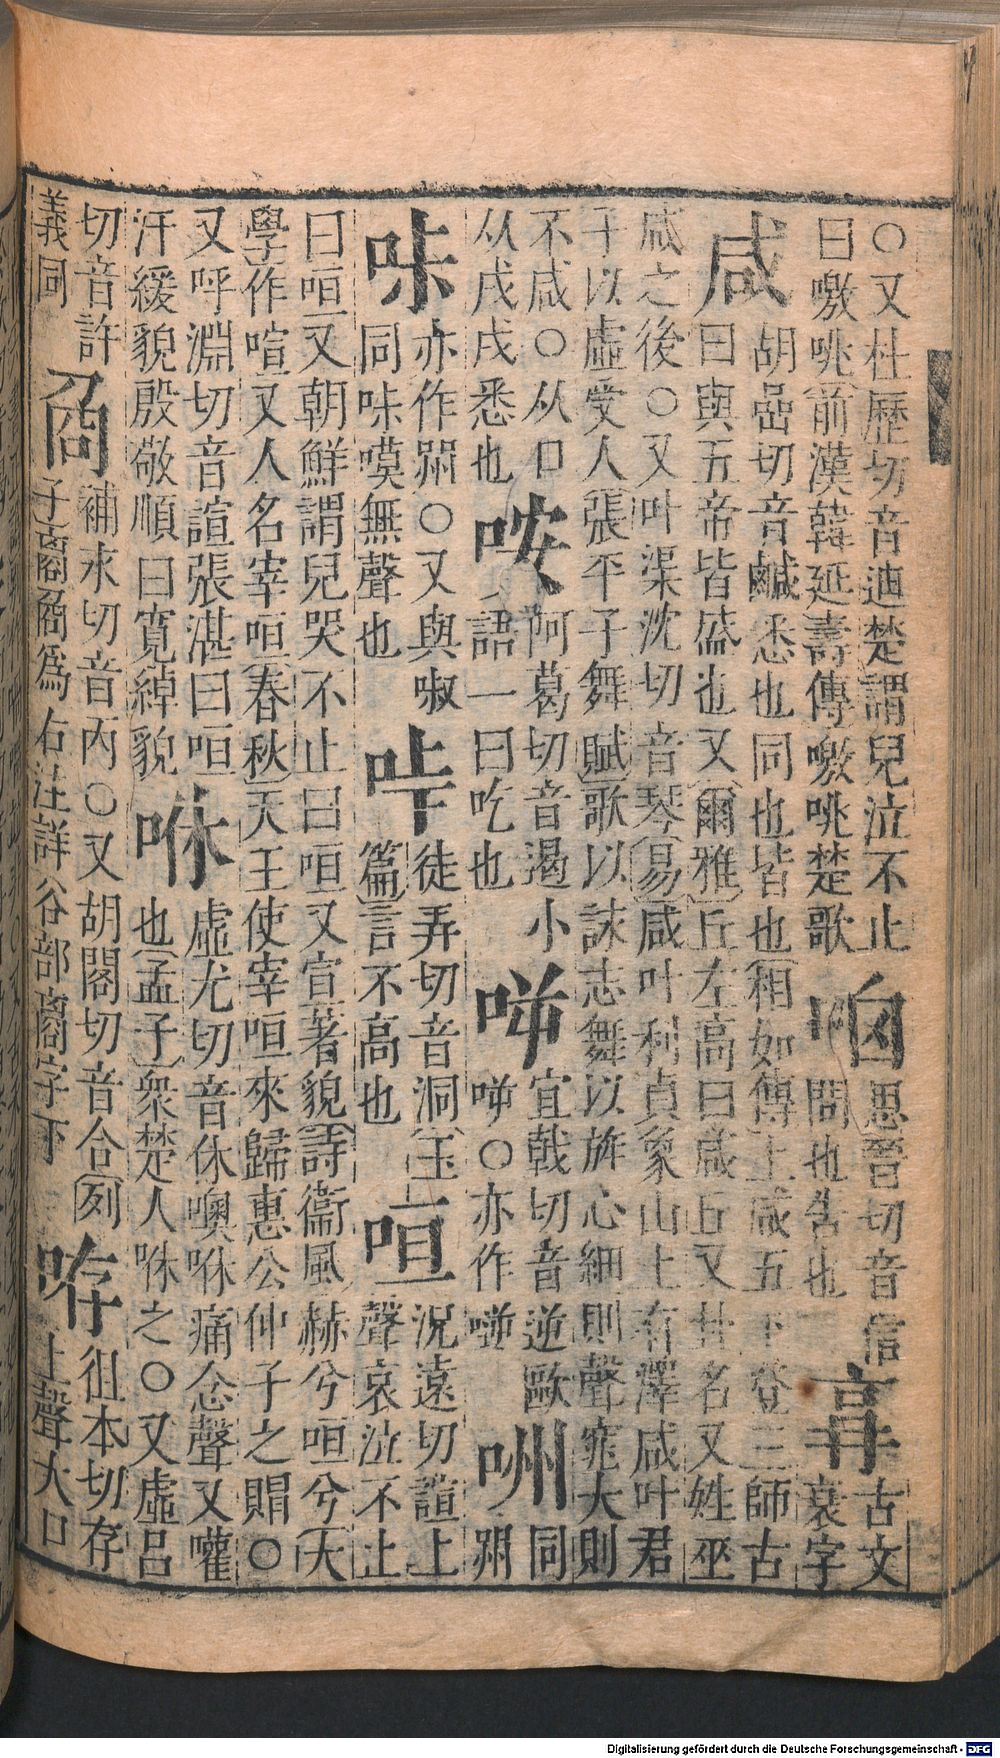 〇又杜歷切音迪楚謂兒泣不止
曰噭咷前漢韓延壽傳噭咷楚歌
㕯思晉切音信
問也告也
古文
哀字
咸胡嵒切音鹹悉也同也皆也相如傳上咸五下登三師古
曰與五帝皆盛也又爾雅丘左高曰咸丘又廿名又姓巫
咸之後〇又叶渠沈切音琴易咸叶利貞象山上有澤咸叶君
子以虛受人張平子舞賦歌以詠志舞以旌心細則聲窕大則
不咸〇从口
从戌戌悉也
咹阿葛切音遏小
語一曰吃也
㖾宜戟切音逆歐
㖾〇亦作㗁
咝同
喌
咮亦作喌〇又與啾
同咮嗼無聲也
哢徒弄切音洞玉
篇言不高也
咺況遠切諠上
聲哀泣不止
曰咺又朝鮮謂兒哭不止曰咺又宣著貌詩衞風赫兮咺兮大
學作喧又人名宰咺春秋天王使宰咺來歸惠公仲子之賵〇
又呼淵切音諠張湛曰咺
汗緩貌殷敬順曰寬綽貌
咻虛尤切音休噢咻痛念聲又嚾
也孟子衆楚人咻之〇又虛呂
切音許
義同
啇補永切音丙〇又胡閣切音合列
子啇啇爲右注詳谷部啇字下
㖔徂本切存
上聲大口
Digitalisierung gefördert durch die Deutsche Forschungsgemeinschaft - DFG